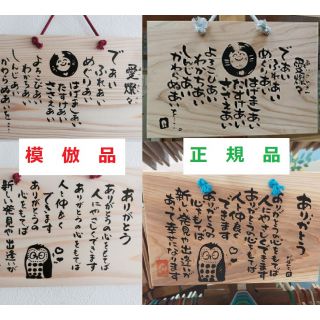 愛燦々
であい
ふれあい
めぐりあい
はげましあい
たすけあい
ささえあい
よろこびあい
わかちあい
しんじあい
かわらぬあいを…
愛燦々
であい
ふれあい
めぐりあい
はげましあい
たすけあい
ささえあい
よろこびあい
わかちあい
しんじあい
かわらぬあいを…
模倣品
正規品
ありがとう
ありがとうの心をもてば
人にやさしくできます
ありがとうの心をもてば
人と仲良く
できます
ありがとうの
心をもてば
新しい発見や出逢いが
ありがとう
ありがとうの心をもてば
人にやさしくできます
ありがとうの心をもてば
人と仲良く
できます
ありがとうの
心をもてば
新しい発見や出逢いが
あって幸せになります